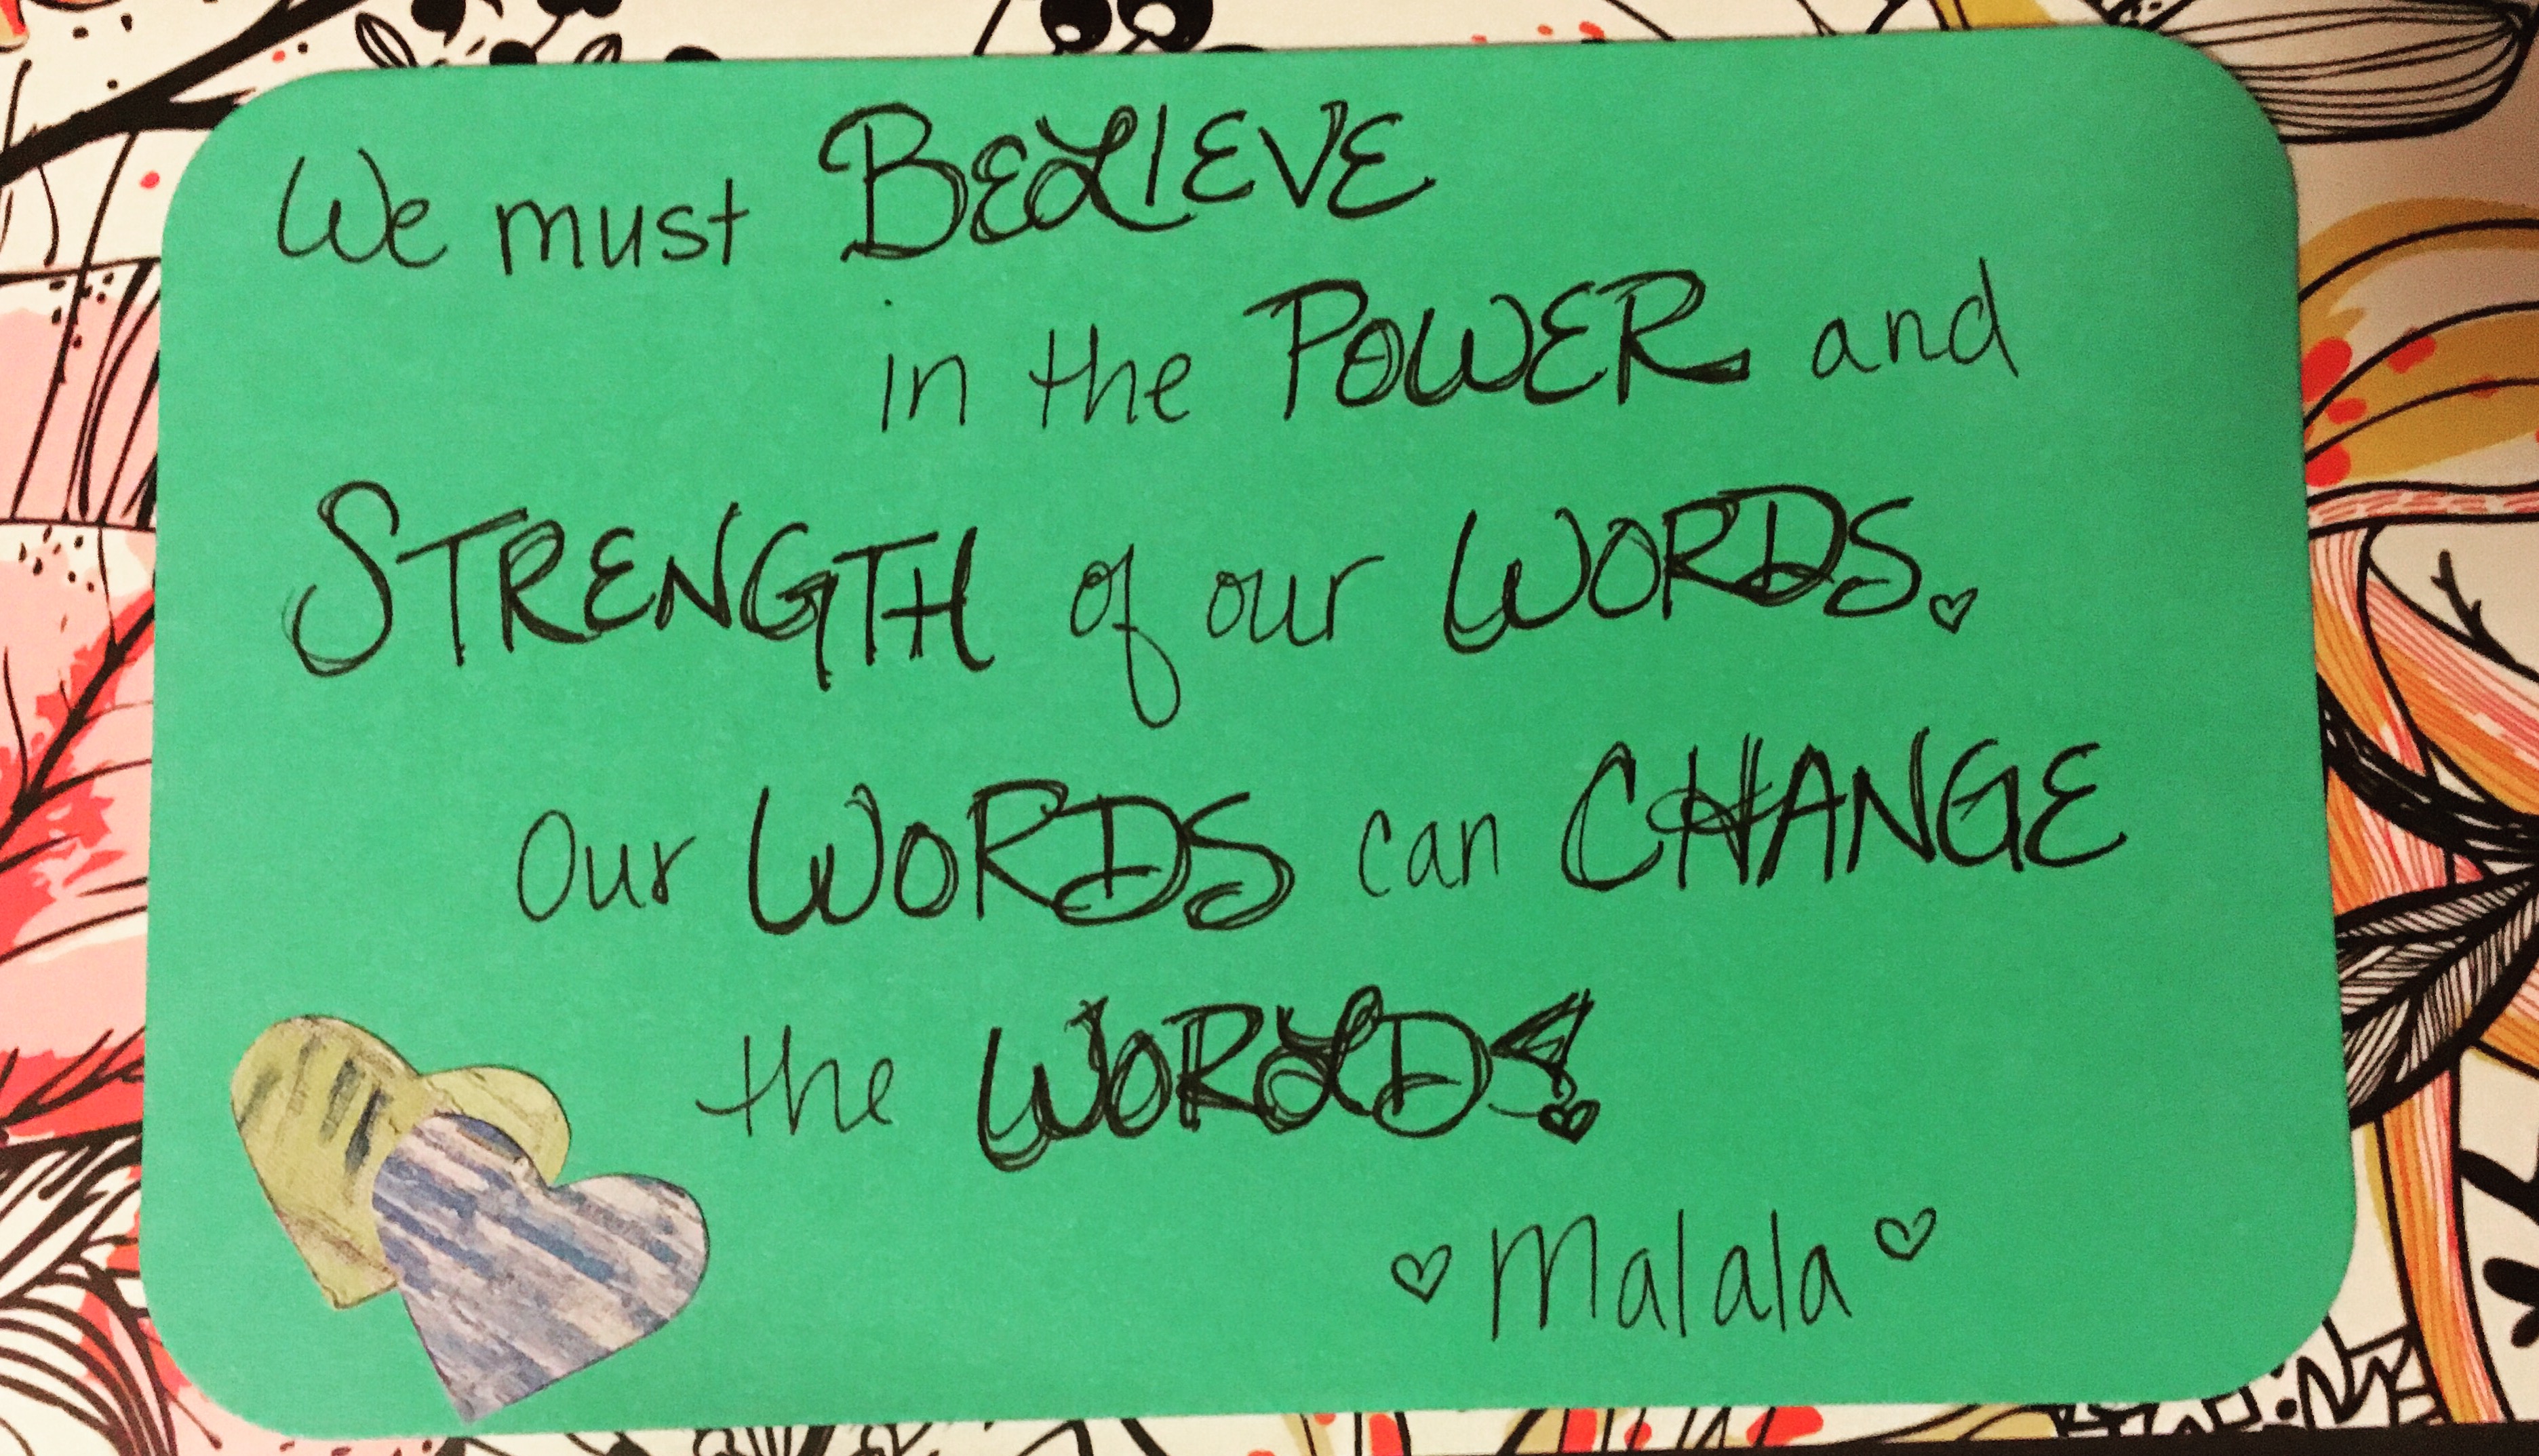 We must BELIEVE
in the POWER and
STRENGTH of our WORDS.
Our WORDS can CHANGE
the WORLD!
♡ Malala ♡